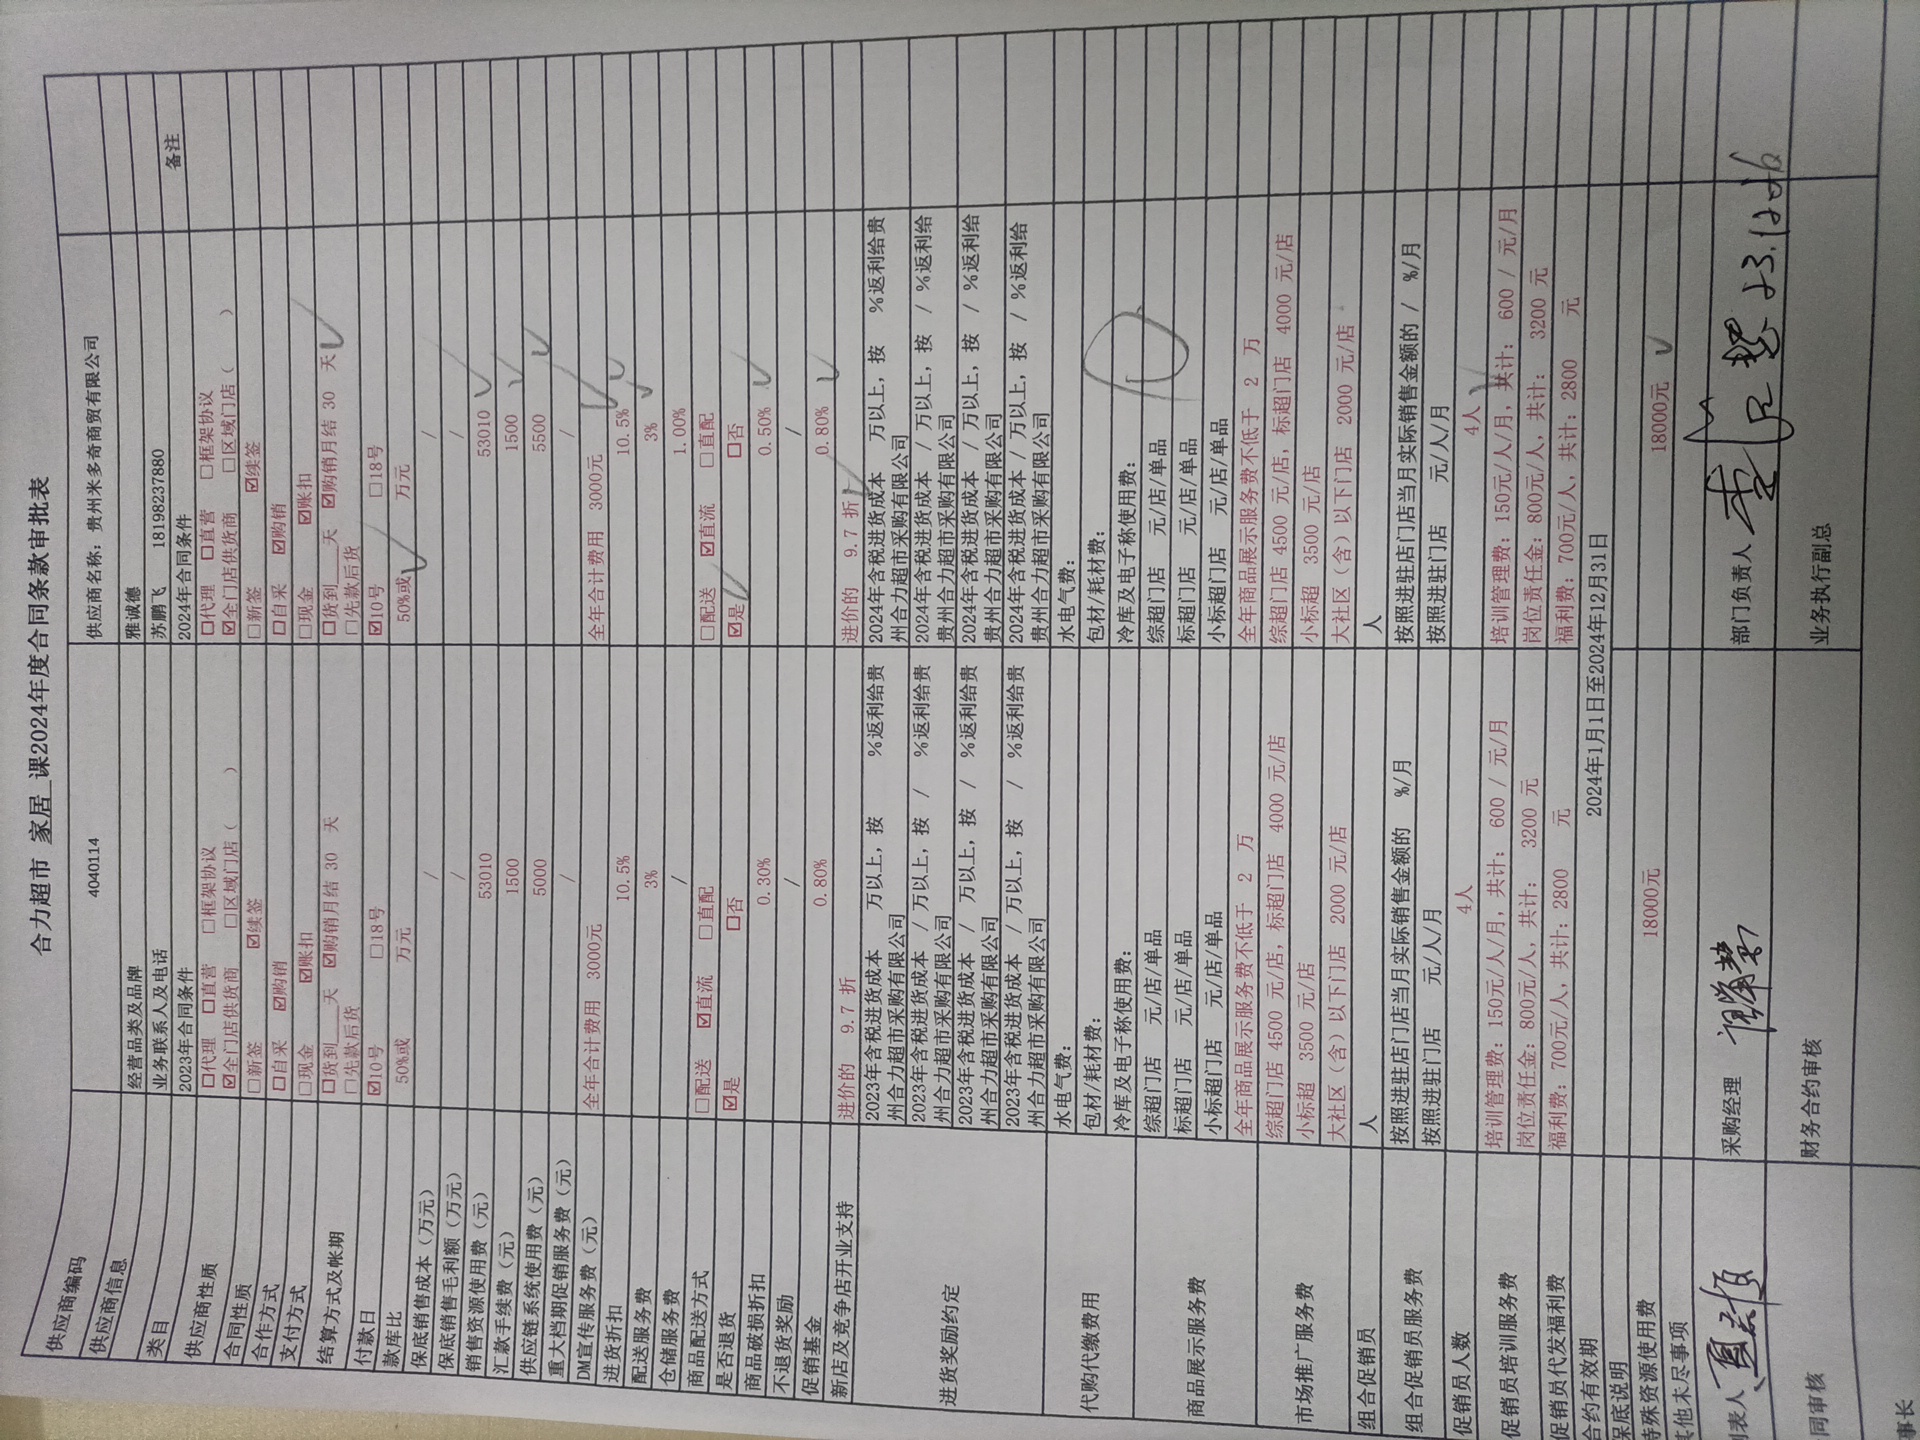 合力超市 家居_课2024年度合同条款审批表
供应商编码 4040114 供应商名称：贵州米多奇商贸有限公司
供应商信息 经营品类及品牌 雅诚德
业务联系人及电话 苏鹏飞 18198237880
类目 2023年合同条件 2024年合同条件 备注
供应商性质 □代理 □直营 □框架协议 □代理 □直营 □框架协议
☑全门店供货商 □区域门店（ ） ☑全门店供货商 □区域门店（ ）
合同性质 □新签 ☑续签 □新签 ☑续签
合作方式 □自采 ☑购销 □自采 ☑购销
支付方式 □现金 ☑账扣 □现金 ☑账扣
结算方式及帐期 □货到__天 ☑购销月结 30 天 □货到__天 ☑购销月结 30 天
□先款后货 □先款后货
付款日 ☑10号 □18号 ☑10号 □18号
款库比 50%或 万元 50%或 万元
保底销售成本（万元） / /
保底销售毛利额（万元） / /
销售资源使用费（元） 53010 53010
汇款手续费（元） 1500 1500
供应链系统使用费（元） 5000 5500
重大档期促销服务费（元） / /
DM宣传服务费（元） 全年合计费用 3000元 全年合计费用 3000元
进货折扣 10.5% 10.5%
配送服务费 3% 3%
仓储服务费 / 1.00%
商品配送方式 □配送 ☑直流 □直配 □配送 ☑直流 □直配
是否退货 ☑是 □否 ☑是 □否
商品破损折扣 0.30% 0.50%
不退货奖励 / /
促销基金 0.80% 0.80%
新店及竞争店开业支持 进价的 9.7 折 进价的 9.7 折
进货奖励约定 2023年含税进货成本 万以上，按 %返利给贵 2024年含税进货成本 万以上，按 %返利给贵
州合力超市采购有限公司 州合力超市采购有限公司
2023年含税进货成本 / 万以上，按 / %返利给贵 2024年含税进货成本 / 万以上，按 / %返利给
州合力超市采购有限公司 贵州合力超市采购有限公司
2023年含税进货成本 / 万以上，按 / %返利给贵 2024年含税进货成本 / 万以上，按 / %返利给
州合力超市采购有限公司 贵州合力超市采购有限公司
2023年含税进货成本 / 万以上，按 / %返利给贵 2024年含税进货成本 / 万以上，按 / %返利给
州合力超市采购有限公司 贵州合力超市采购有限公司
代购代缴费用 水电气费： 水电气费：
包材/耗材费： 包材/耗材费：
冷库及电子称使用费： 冷库及电子称使用费：
商品展示服务费 综超门店 元/店/单品 综超门店 元/店/单品
标超门店 元/店/单品 标超门店 元/店/单品
小标超门店 元/店/单品 小标超门店 元/店/单品
全年商品展示服务费不低于 2 万 全年商品展示服务费不低于 2 万
市场推广服务费 综超门店 4500 元/店，标超门店 4000 元/店 综超门店 4500 元/店，标超门店 4000 元/店
小标超 3500 元/店 小标超 3500 元/店
大社区（含）以下门店 2000 元/店 大社区（含）以下门店 2000 元/店
组合促销员 人 人
组合促销员服务费 按照进驻店门店当月实际销售金额的 %/月 按照进驻店门店当月实际销售金额的 / %/月
按照进驻门店 元/人/月 按照进驻门店 元/人/月
促销员人数 4人 4人
促销员培训服务费 培训管理费：150元/人/月，共计：600 / 元/月 培训管理费：150元/人/月，共计：600 / 元/月
岗位责任金：800元/人，共计： 3200 元 岗位责任金：800元/人，共计： 3200 元
促销员代发福利费 福利费：700元/人，共计：2800 元 福利费：700元/人，共计：2800 元
合约有效期 2024年1月1日至2024年12月31日
保底说明
特殊资源使用费 18000元 18000元
其他未尽事项
制表人 采购经理 部门负责人 23.1206
同审核 财务合约审核 业务执行副总
事长